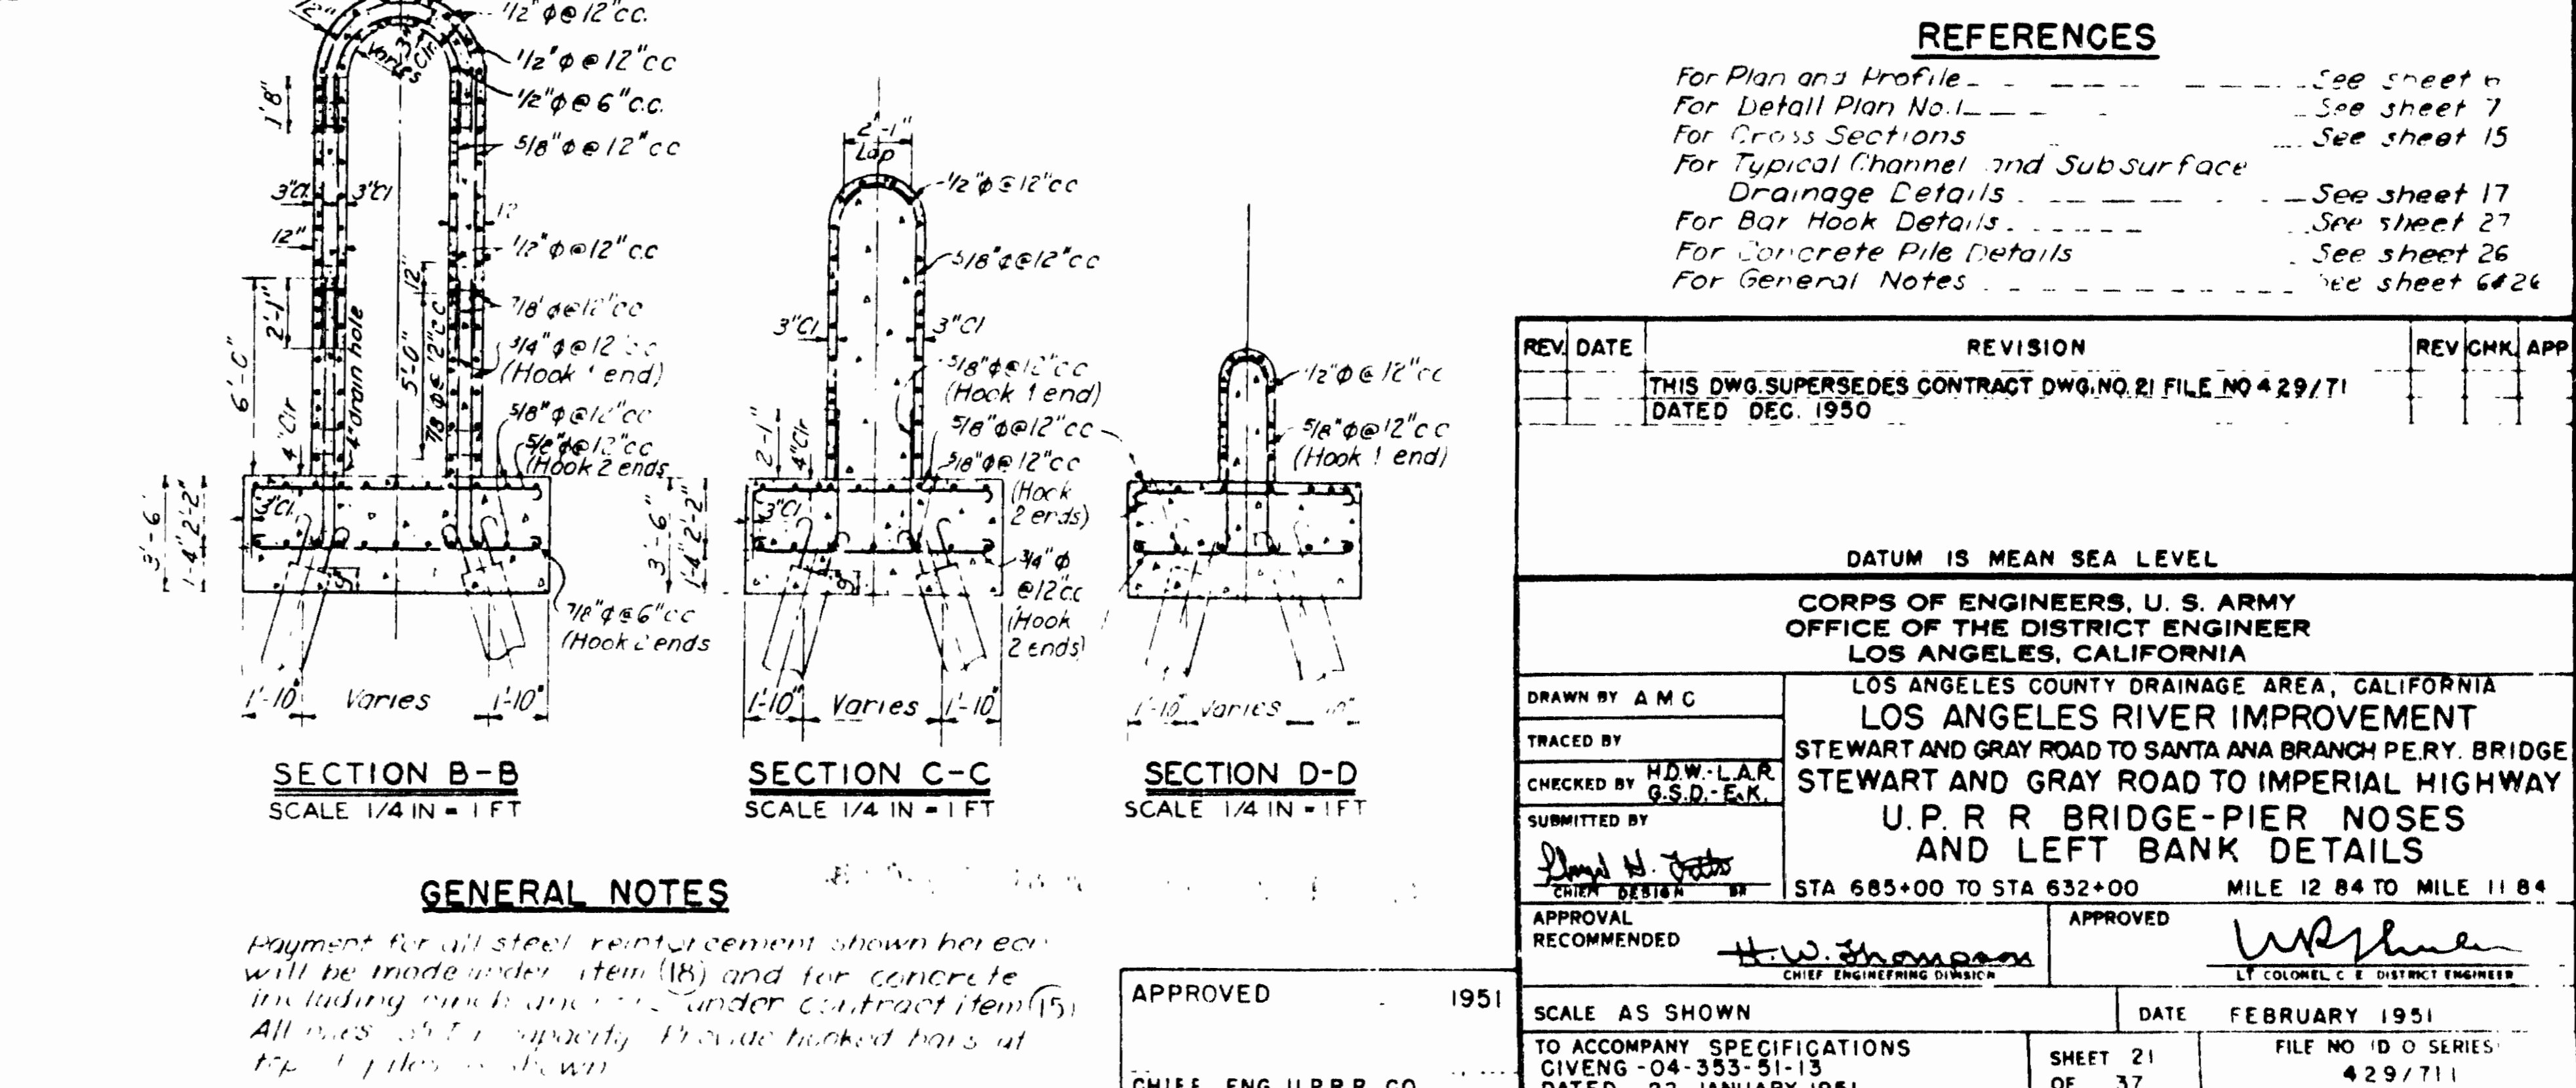 12"
Varies
3" Clr.
1/2"φ@12"cc.
1/2"φ@12"cc
1/2"φ@6"c.c.
5/8"φ@12"cc
1'8"
3"Cl.
3"Cl
12
12"
1/2"φ@12"c.c
12"
7/8"φ@12"cc
3/4"φ@12"cc
(Hook 1 end)
2'-1"
6'-0"
4"drain hole
5'-0"
7/8"φ@12"cc
4"Clr
5/8"φ@12"cc
5/8"φ@12"cc
(Hook 2 ends
3"Cl.
3'-6"
1'-4" 2'-2"
9"
7/8"φ@6"cc
(Hook 2 ends
1'-10" Varies 1'-10"
SECTION B-B
SCALE 1/4 IN = 1 FT
2'-1"
Lap
1/2"φ@12"cc
5/8"φ@12"cc
3"Cl
3"Cl
5/8"φ@12"cc
(Hook 1 end)
5/8"φ@12"cc
2'-1"
4"Clr
5/8"φ@12"cc
(Hook
2 ends)
3"Cl
3'-6"
1'-4" 2'-2"
9"
3/4"φ
@12"cc
(Hook
2 ends)
1'-10" Varies 1'-10"
SECTION C-C
SCALE 1/4 IN = 1 FT
1/2"φ@12"cc
5/8"φ@12"cc
(Hook 1 end)
1'-10" Varies
SECTION D-D
SCALE 1/4 IN = 1 FT
GENERAL NOTES
Payment for all steel reinforcement shown hereon
will be made under item (18) and for concrete
including under contract item (15)
All capacity. Provide hooked bars at
top of piles as shown
REFERENCES
For Plan and Profile See sheet 6
For Detail Plan No.1 See sheet 7
For Cross Sections See sheet 15
For Typical Channel and Subsurface
Drainage Details See sheet 17
For Bar Hook Details See sheet 27
For Concrete Pile Details See sheet 26
For General Notes See sheet 6&26
REV. DATE REVISION REV CHK. APP
THIS DWG. SUPERSEDES CONTRACT DWG. NO. 21 FILE NO 429/71
DATED DEC. 1950
DATUM IS MEAN SEA LEVEL
CORPS OF ENGINEERS, U. S. ARMY
OFFICE OF THE DISTRICT ENGINEER
LOS ANGELES, CALIFORNIA
DRAWN BY A M C
TRACED BY
CHECKED BY H.D.W.-L.A.R.
G.S.D.-E.K.
SUBMITTED BY
CHIEF DESIGN BR
LOS ANGELES COUNTY DRAINAGE AREA, CALIFORNIA
LOS ANGELES RIVER IMPROVEMENT
STEWART AND GRAY ROAD TO SANTA ANA BRANCH P.E.RY. BRIDGE
STEWART AND GRAY ROAD TO IMPERIAL HIGHWAY
U.P. R R BRIDGE-PIER NOSES
AND LEFT BANK DETAILS
STA 685+00 TO STA 632+00 MILE 12 84 TO MILE 11 84
APPROVAL
RECOMMENDED
H.W. Thompson
CHIEF ENGINEERING DIVISION
APPROVED
LT COLONEL C E DISTRICT ENGINEER
SCALE AS SHOWN DATE FEBRUARY 1951
TO ACCOMPANY SPECIFICATIONS
CIVENG-04-353-51-13
DATED 22 JANUARY 1951
SHEET 21
OF 37
FILE NO (D O SERIES)
429/711
APPROVED 1951
CHIEF ENG U.P.R.R CO